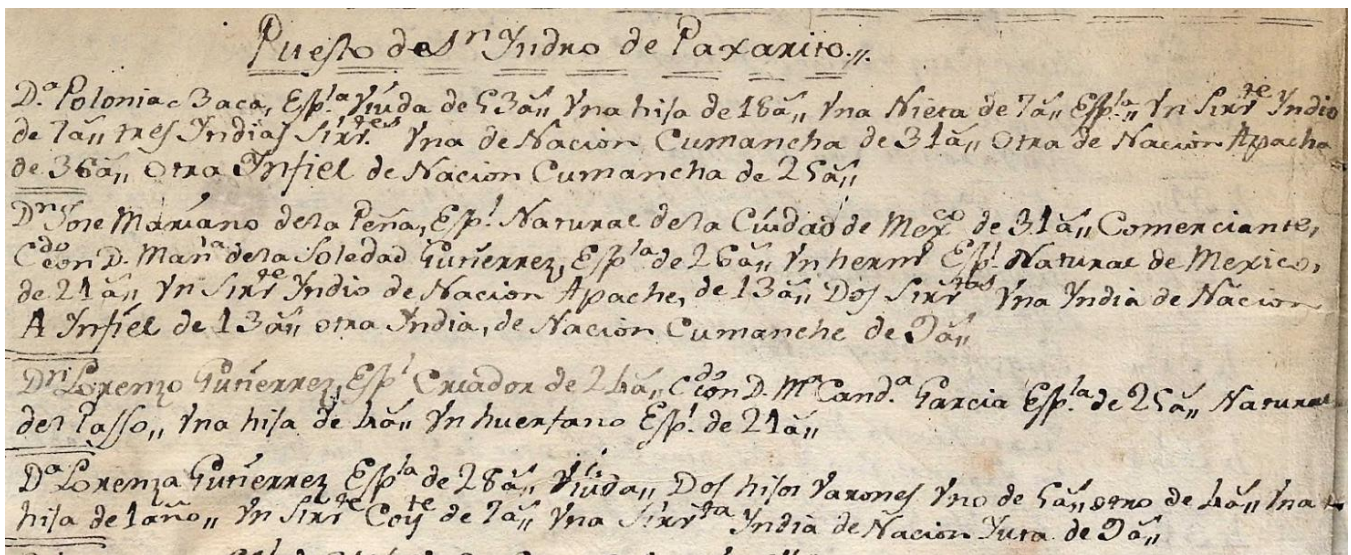 Puesto de Sn Ysidro de Paxarito.,,
D.a Polonia Baca, Esp.la Viuda de 53 a,, Vna hija de 18 a,, Vna Nieta de 7 a,, Esp.la,, Vn Sirv.te Yndio
de 7 a,, tres Yndias Sirv.tes Vna de Nacion Cumancha de 31 a,, Otra de Nacion Apacha
de 36 a,, Otra Ynfiel de Nacion Cumancha de 25 a,,
D.n Jose Mariano de la Peña, Esp.l Natural de la Ciudad de Mex.co de 31 a,, Comerciante,
C.do con D. Mari.a de la Soledad Gutierrez, Esp.la de 26 a,, Vn herm.o Esp.l Natural de Mexico,
de 21 a,, Vn Sirv.te Yndio de Nacion Apache, de 13 a,, Dos Sirv.tas Vna Yndia de Nacion
A Ynfiel de 13 a,, otra Yndia, de Nacion Cumanche de 9 a,,
D.n Lorenzo Gutierrez, Esp.l Criador de 24 a,, C.do con D. M.a Cand.a Garcia Esp.la de 25 a,, Natural
del Passo,, Vna hija de 4 a,, Vn huerfano Esp.l de 21 a,,
D.a Lorenza Gutierrez Esp.la de 28 a,, Viuda,, Dos hijos Varones Vno de 5 a,, otro de 4 a,, Vna
hija de 1 año,, Vn Sirv.te Coy.te de 7 a,, Vna Sirv.ta Yndia de Nacion Yuta de 9 a,,